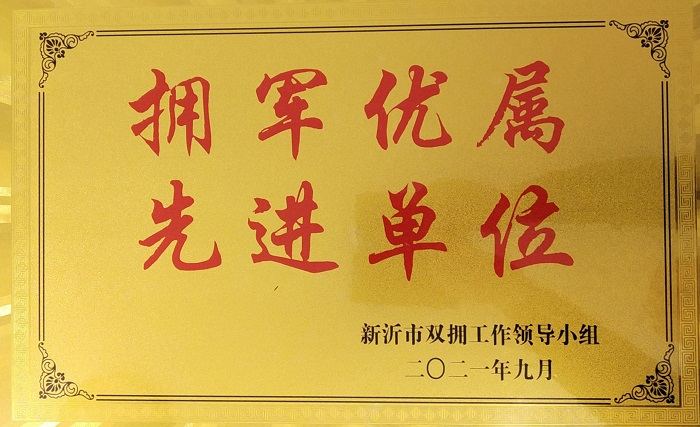 拥军优属
先进单位
新沂市双拥工作领导小组
二〇二一年九月